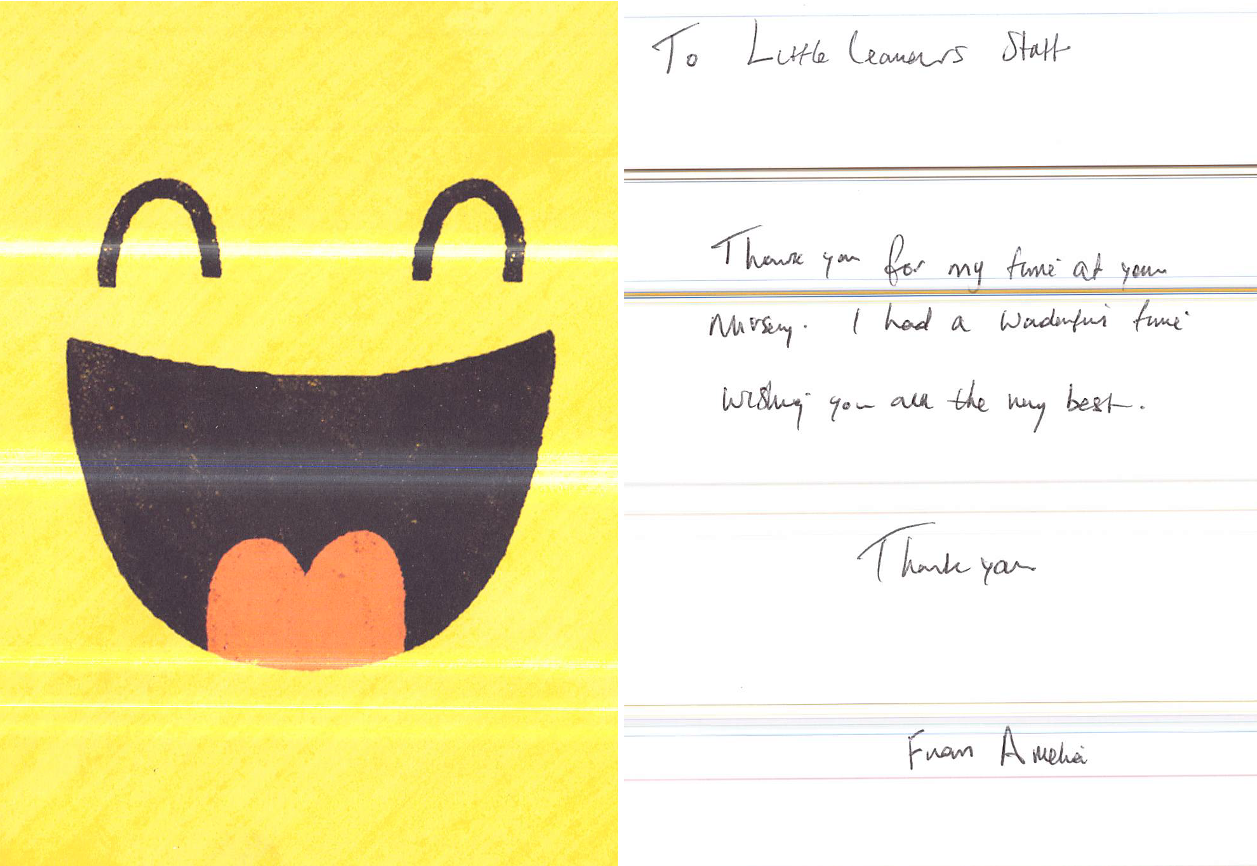 To Little Learners Staff
Thank you for my time at your
Nursery. I had a wonderful time
wishing you all the very best.
Thank you
From Amelia